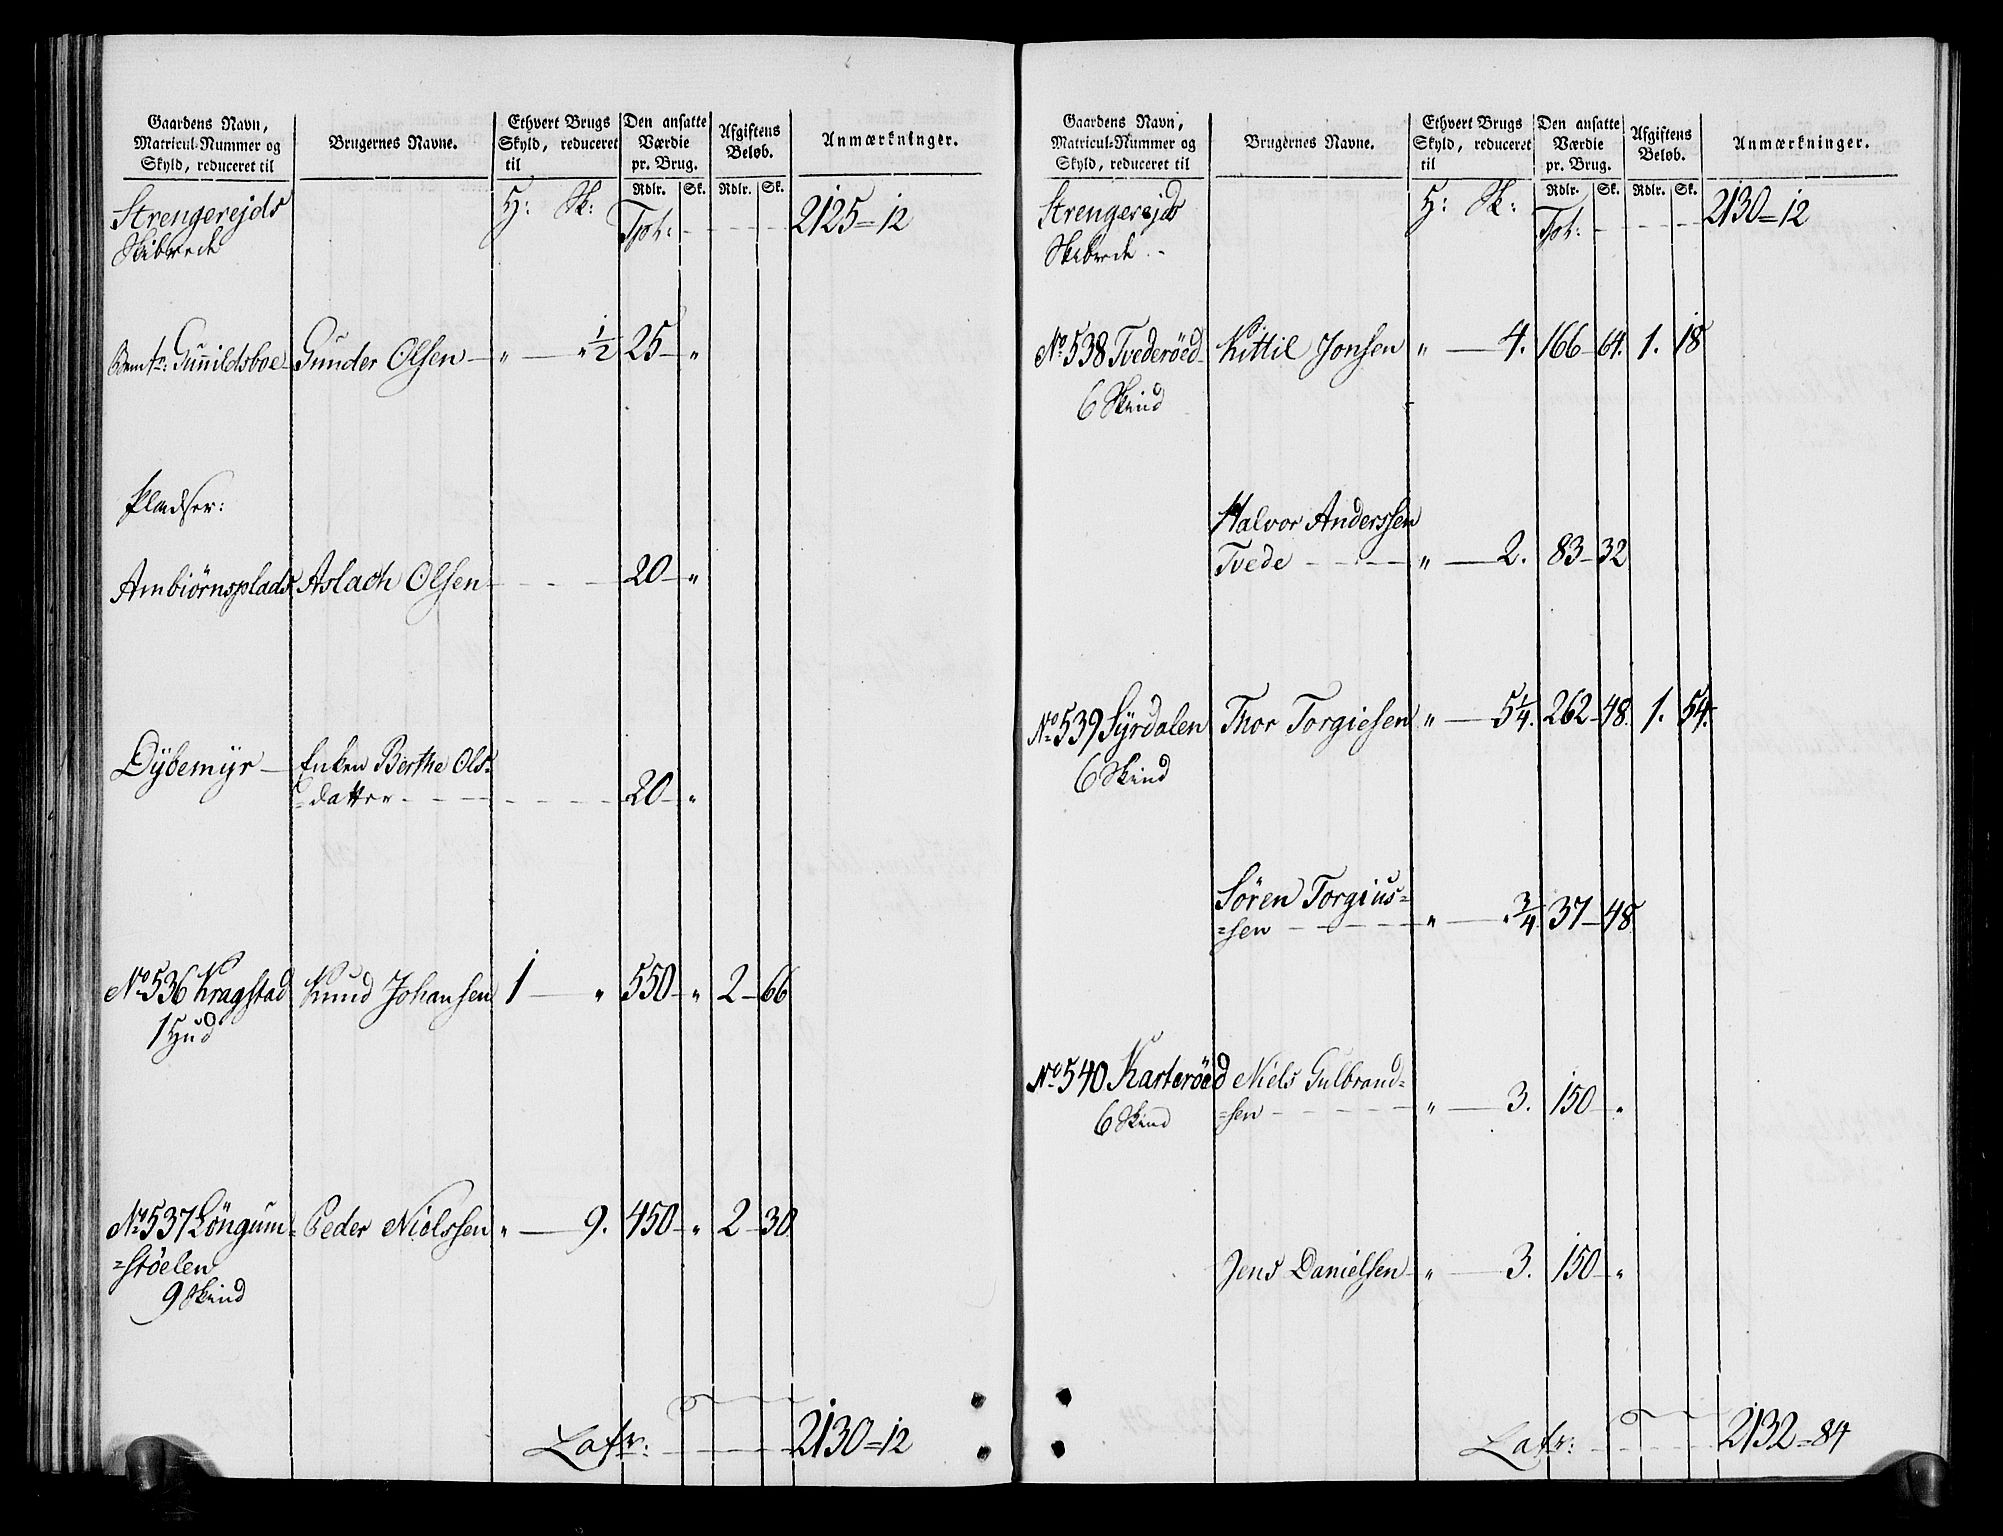 Gaardens Navn, Matricul-Nummer og Skyld, reduceret til | Brugernes Navne. | Ethvert Brugs Skyld, reduceret til | Den ansatte Værdie pr. Brug. | Afgiftens Beløb. | Anmærkninger.
Rdlr. Sk. Rdlr. Sk.
Strengerejds H: Sk: Tpt: 2125=12
Skibrede
Gunnildsboe Gunder Olsen — „ — „ 1/2 25 — „
Pladser:
Ambiørnsplads Aslach Olsen 20 — „
Dybemyr — Enken Berthe Ols=
=datter 20 — „
No 536 Kragstad Knud Johansen 1 — „ 550 — „ 2 — 66
1 Hud
No 537 Longum= Peder Nielssen „ — 9. 450 — „ 2 — 30
=støelen
9 Skind
Latr: 2130=12
Gaardens Navn, Matricul-Nummer og Skyld, reduceret til | Brugernes Navne. | Ethvert Brugs Skyld, reduceret til | Den ansatte Værdie pr. Brug. | Afgiftens Beløb. | Anmærkninger.
Rdlr. Sk. Rdlr. Sk.
Strengerejds H: Sk: Tpt: 2130=12
Skibrede
No 538 Tvederöed Kittil Jonsen „ — 4. 166 — 64. 1. 18
6 Skind
Halvor Anderssen
Tvede „ — 2. 83 — 32
No 539 Syrdalen Thor Torgiesen „ — 5 1/4. 262 — 48. 1. 54.
6 Skind
Sören Torgius=
=sen „ — 3/4 37 — 48
No 540 Karteröed Niels Gulbrand=
6 Skind =sen „ — 3. 150 — „
Jens Danielsen „ — 3. 150 — „
Latr: 2132=84